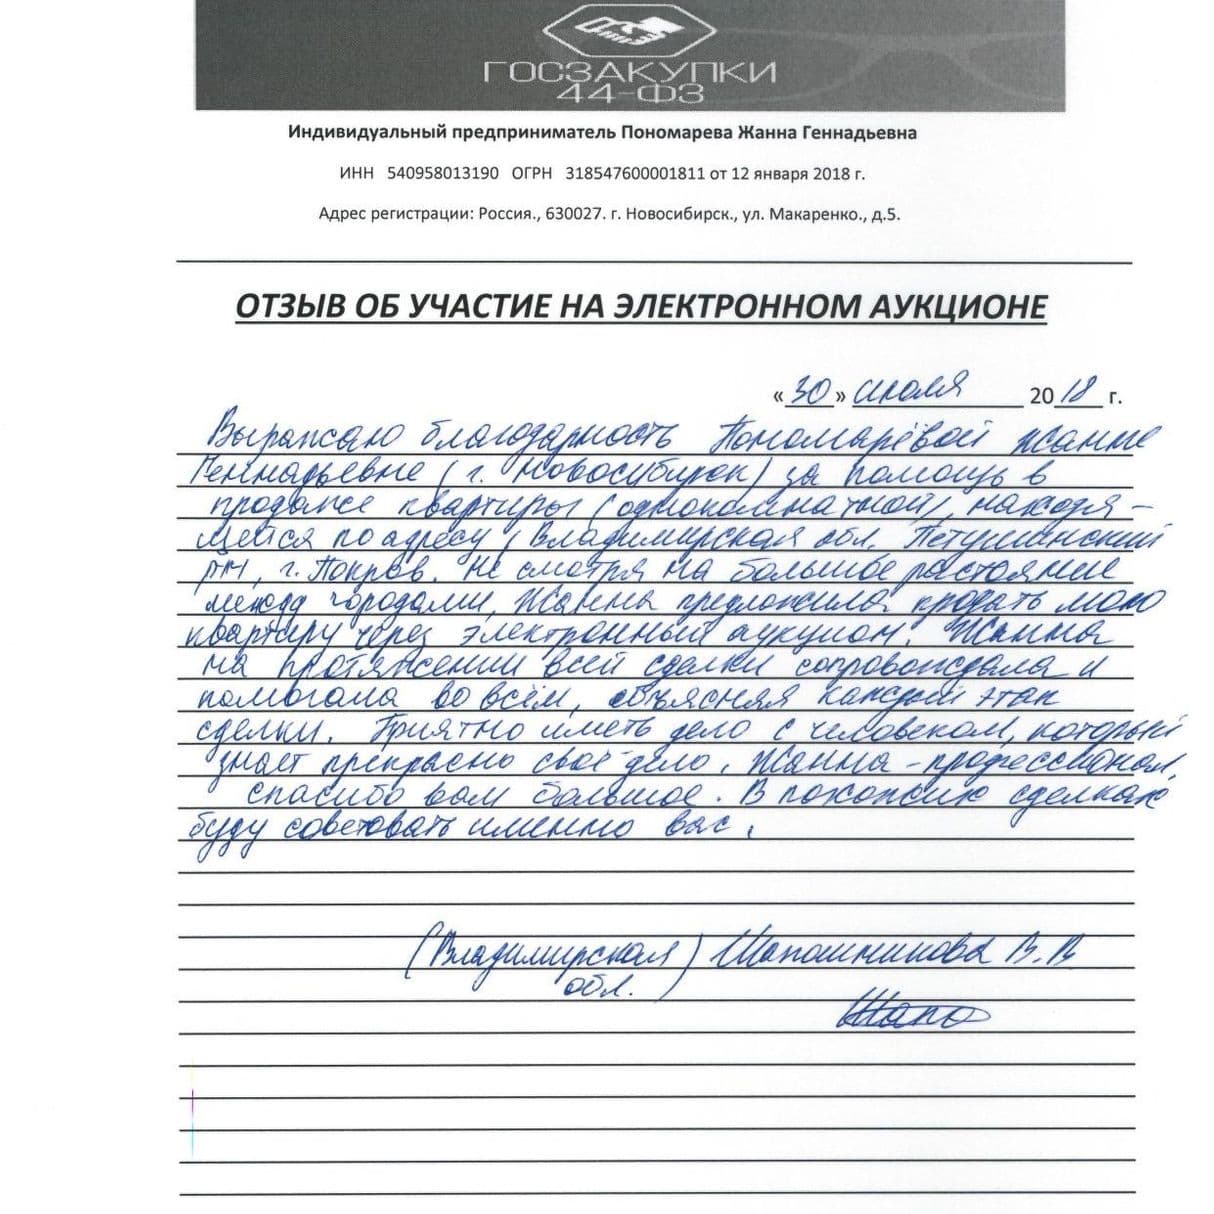 ГОСЗАКУПКИ
44-ФЗ
Индивидуальный предприниматель Пономарева Жанна Геннадьевна
ИНН 540958013190 ОГРН 318547600001811 от 12 января 2018 г.
Адрес регистрации: Россия., 630027. г. Новосибирск., ул. Макаренко., д.5.
ОТЗЫВ ОБ УЧАСТИЕ НА ЭЛЕКТРОННОМ АУКЦИОНЕ
«30» июля 2018 г.
Выражаю благодарность Пономарёвой Жанне
Геннадьевне (г. Новосибирск) за помощь в
продаже квартиры (однокомнатной), находя-
щейся по адресу, Владимирская обл. Петушинский
р-н, г. Покров. Не смотря на большое растояние
между городами, Жанна предложила продать мою
квартиру через электронный аукцион. Жанна
на протяжении всей сделки сопровождала и
помогала во всём, объясняя каждый этап
сделки. Приятно иметь дело с человеком, который
знает прекрасно своё дело. Жанна - профессионал,
спасибо вам большое. В похожих сделках
буду советовать именно вас.
(Владимирская) Шапошникова В.В
обл.
Шапо